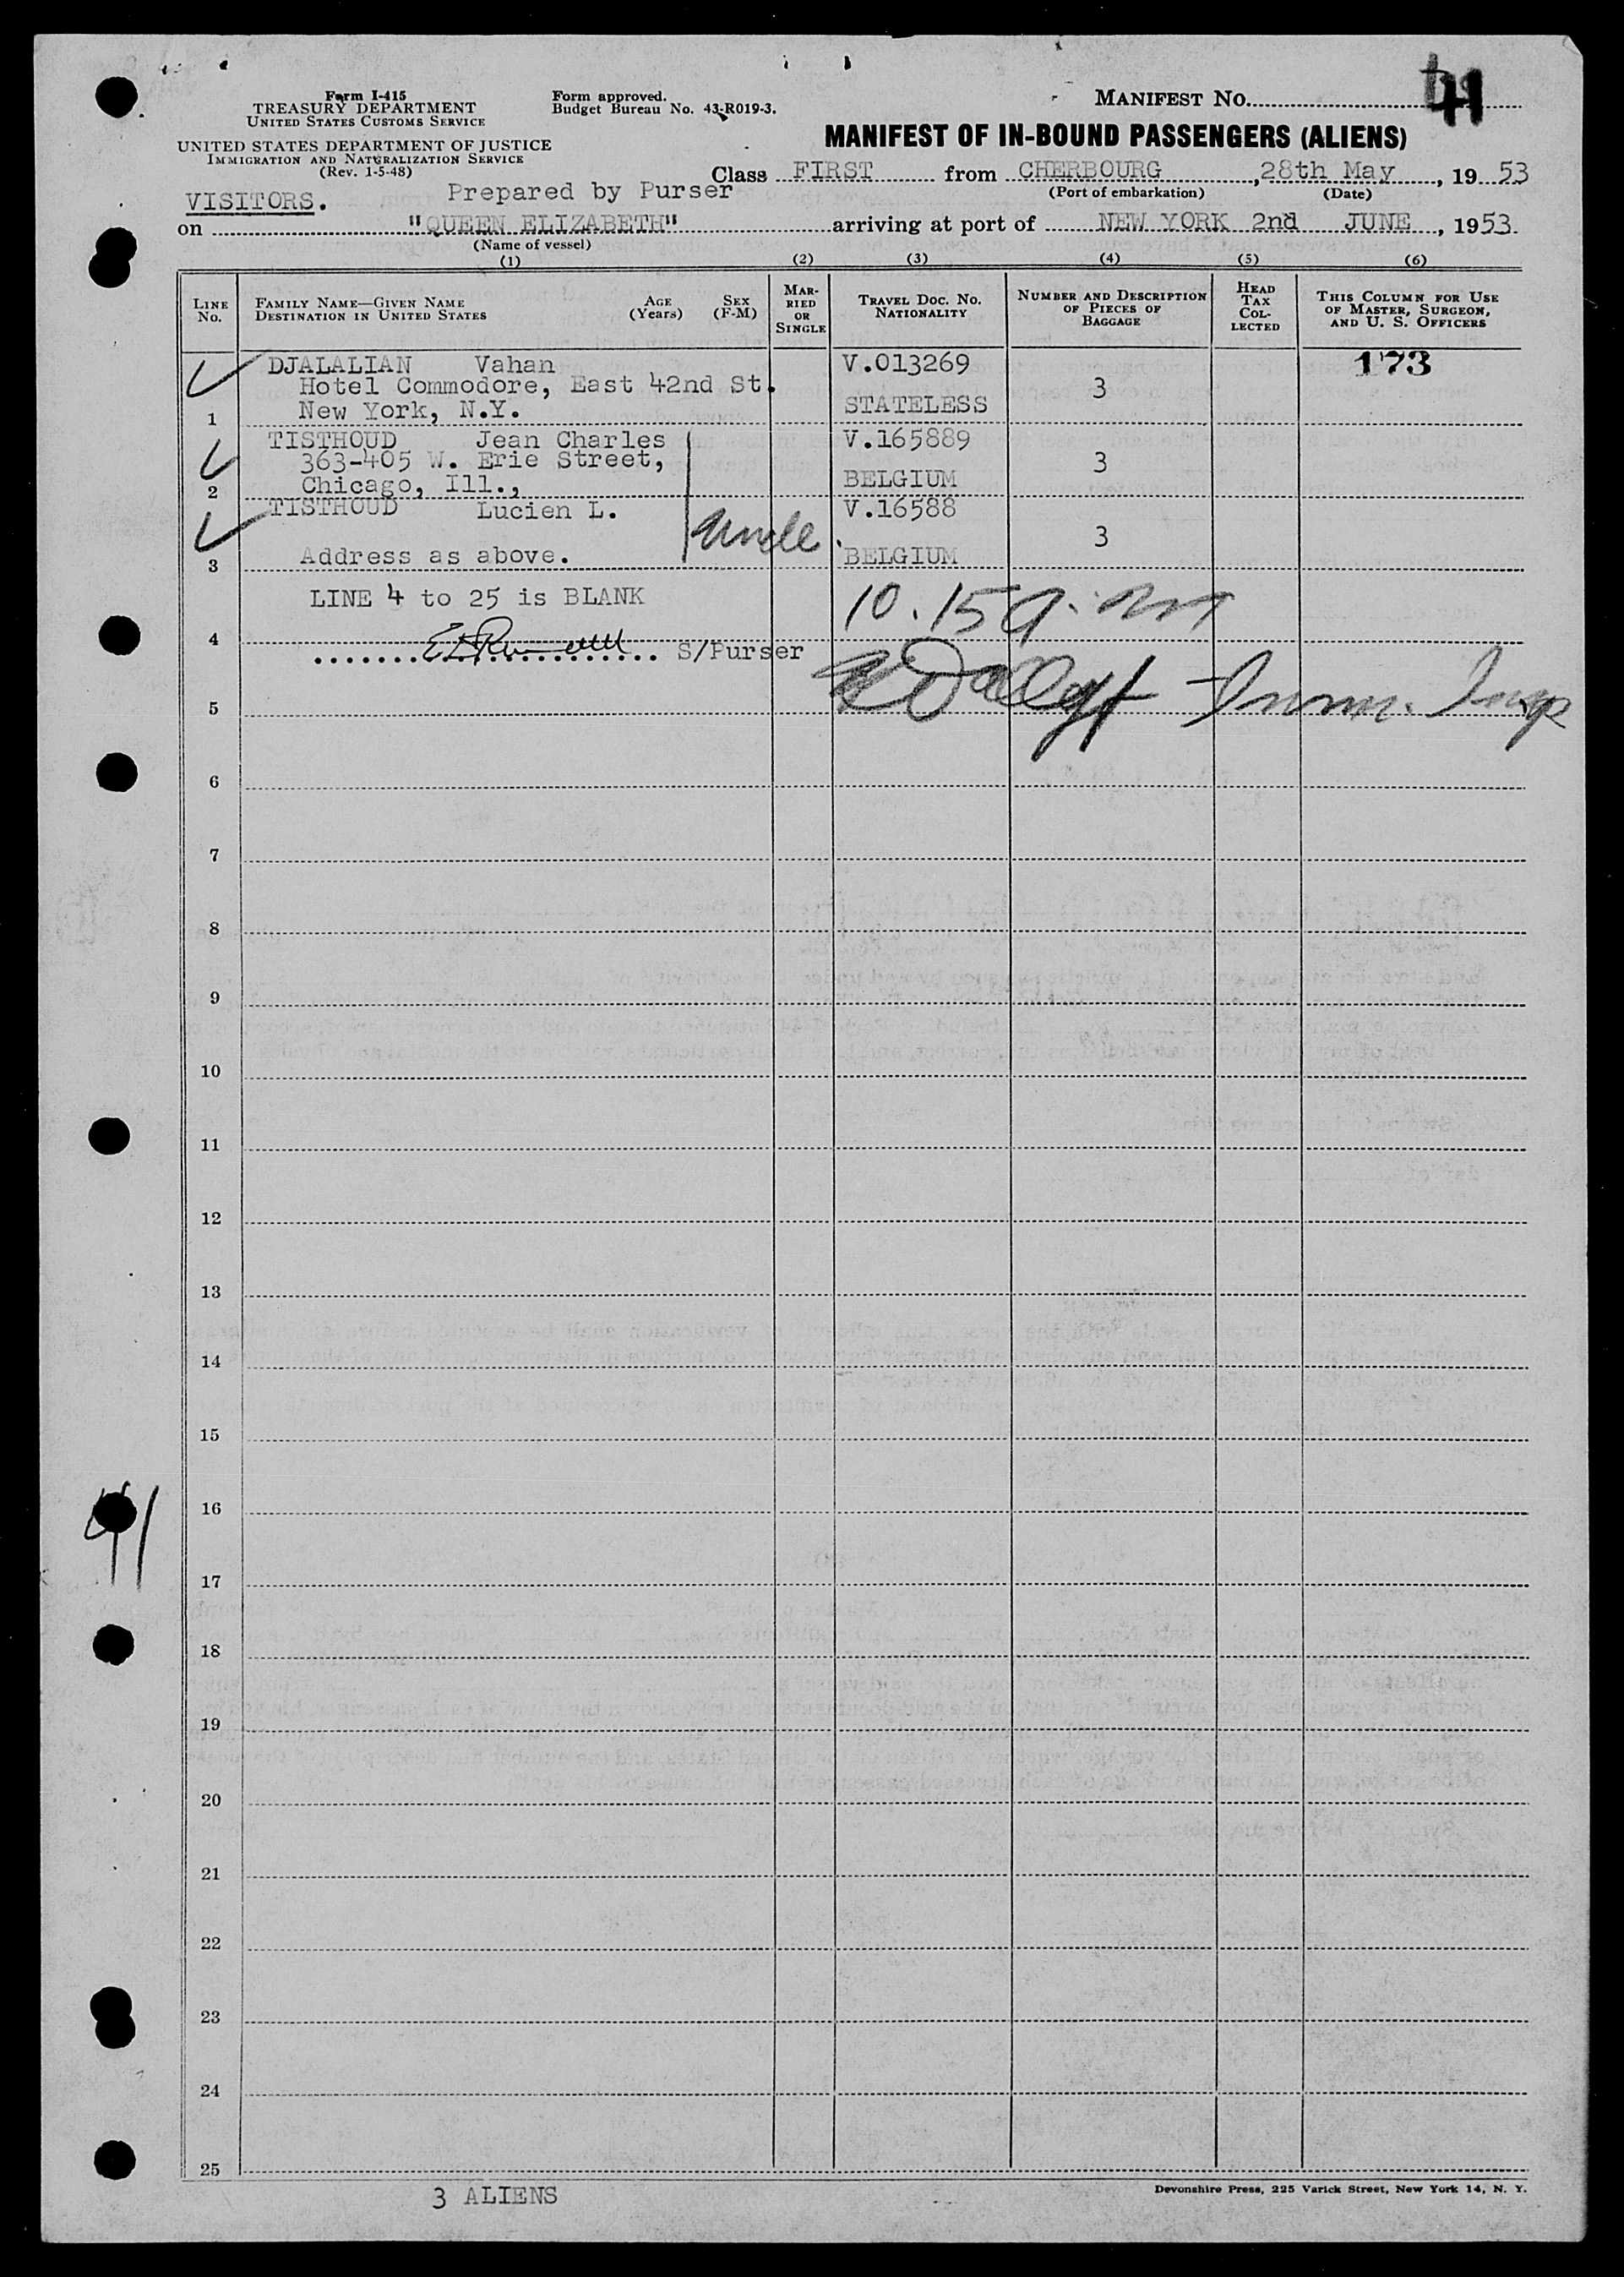 Form I-415
TREASURY DEPARTMENT
UNITED STATES CUSTOMS SERVICE
UNITED STATES DEPARTMENT OF JUSTICE
IMMIGRATION AND NATURALIZATION SERVICE
(Rev. 1-5-48)
Form approved.
Budget Bureau No. 43-R019-3.
MANIFEST No. 41
MANIFEST OF IN-BOUND PASSENGERS (ALIENS)
Class FIRST from CHERBOURG, 28th May, 19 53
(Port of embarkation) (Date)
VISITORS. Prepared by Purser
on "QUEEN ELIZABETH" arriving at port of NEW YORK 2nd JUNE, 1953.
(Name of vessel)
(1) (2) (3) (4) (5) (6)
LINE No. FAMILY NAME—GIVEN NAME DESTINATION IN UNITED STATES AGE (Years) SEX (F-M) MARRIED OR SINGLE TRAVEL DOC. NO. NATIONALITY NUMBER AND DESCRIPTION OF PIECES OF BAGGAGE HEAD TAX COLLECTED THIS COLUMN FOR USE OF MASTER, SURGEON, AND U. S. OFFICERS
DJALALIAN Vahan V.013269 173
Hotel Commodore, East 42nd St. 3
1 New York, N.Y. STATELESS
TISTHOUD Jean Charles V.165889
363-405 W. Erie Street, 3
2 Chicago, Ill., BELGIUM
TISTHOUD Lucien L. V.16588
Uncle. 3
3 Address as above. BELGIUM
LINE 4 to 25 is BLANK 10.15 a.m
4
S/Purser
Imm. Insp
5
6
7
8
9
10
11
12
13
14
15
16
41
17
18
19
20
21
22
23
24
25
3 ALIENS
Devonshire Press, 225 Varick Street, New York 14, N. Y.